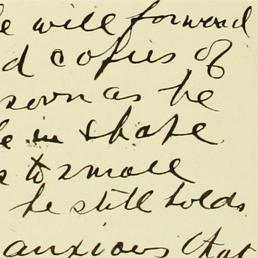 e will forward
d copies of
soon as he
e in shape
s to small
he still holds
anxious that